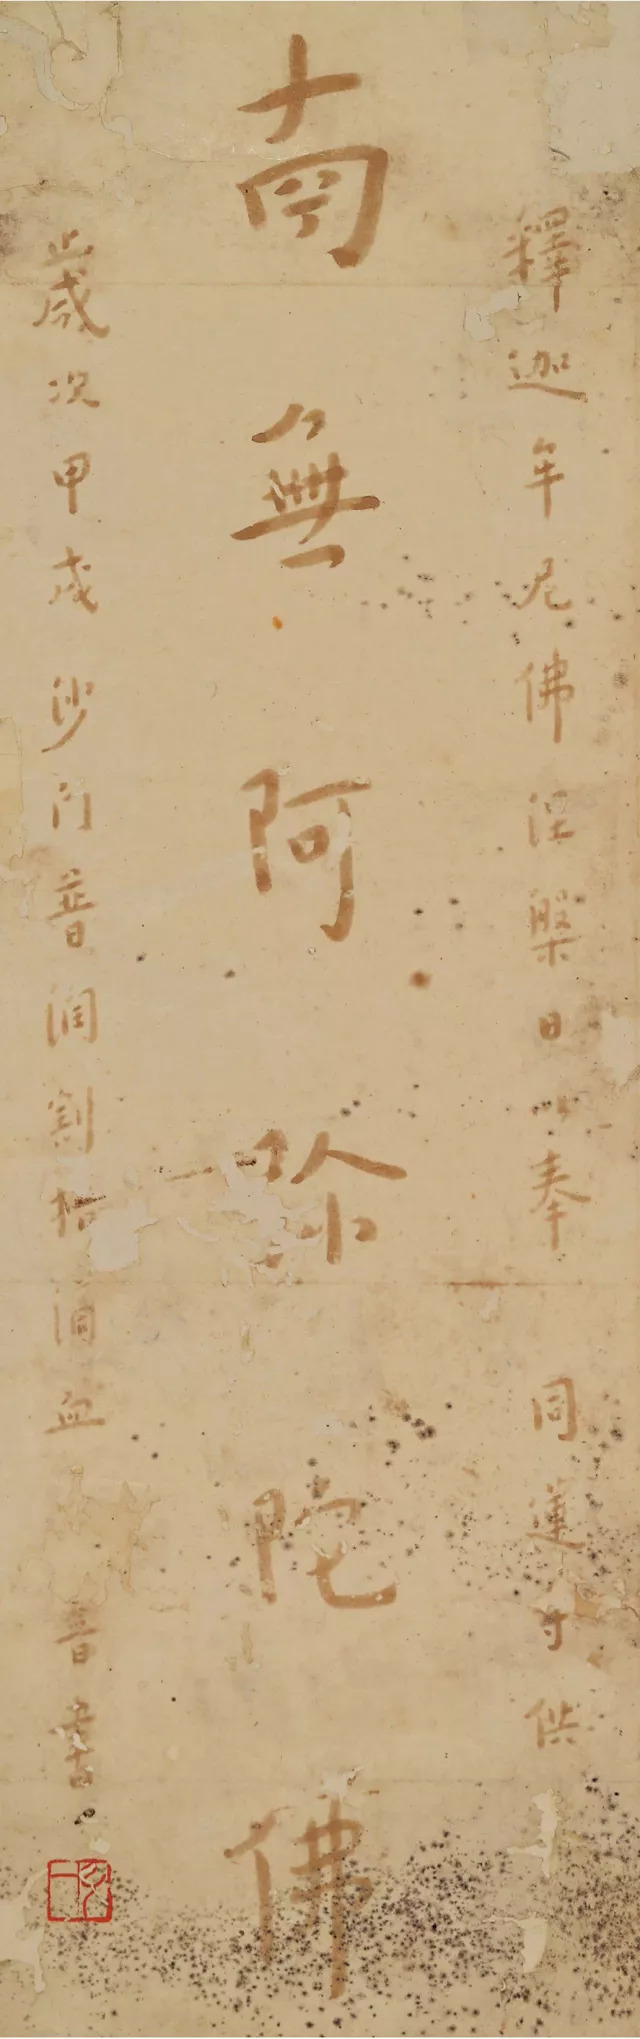 釋迦牟尼佛涅槃日以奉
同蓮寺供
南無阿彌陀佛
歲次甲戌沙門普潤割指瀝血
音書